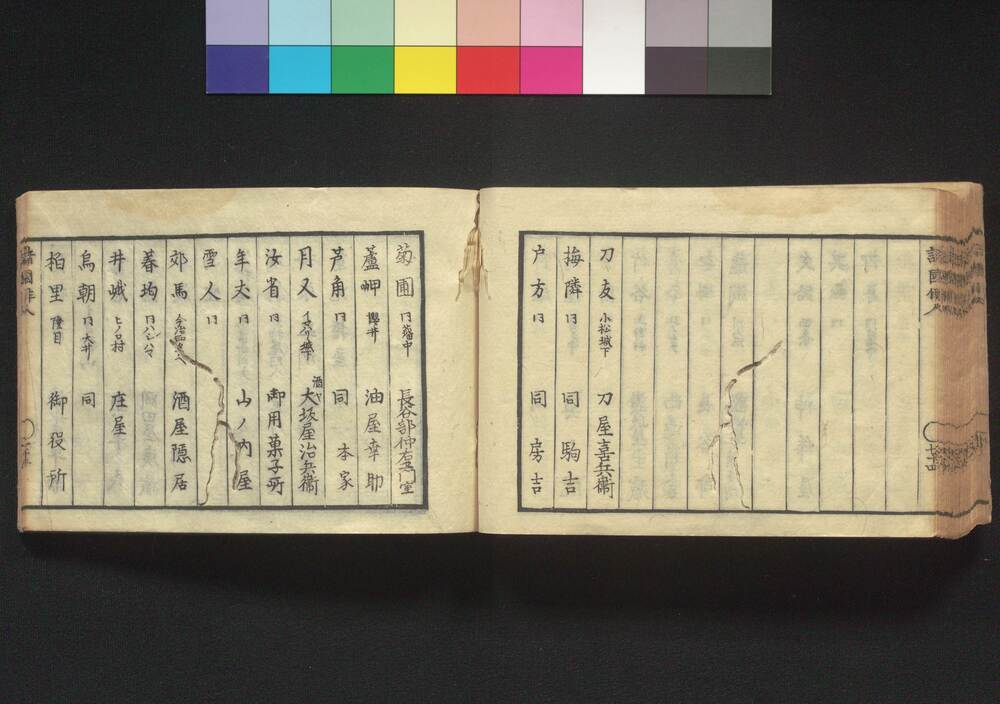 刀友 小松城下 刀屋喜兵衛
梅隣 同 同 駒吉
戸方 同 同 房吉
菊圃 同 藩中 長谷部仲右衛門室
蘆岬 櫻井 油屋幸助
芦角 同 同 本家
月又 酒ヤ 大坂屋治兵衛
汝省 同 御用菓子所
年丈 同 山ノ内屋
雪人 同
郊馬 酒屋隠居
春均 同 ハシハマ
井峨 ヒノ口村 庄屋
烏朝 同 大井 同
柏里 陸目 御役所
諸国俳人